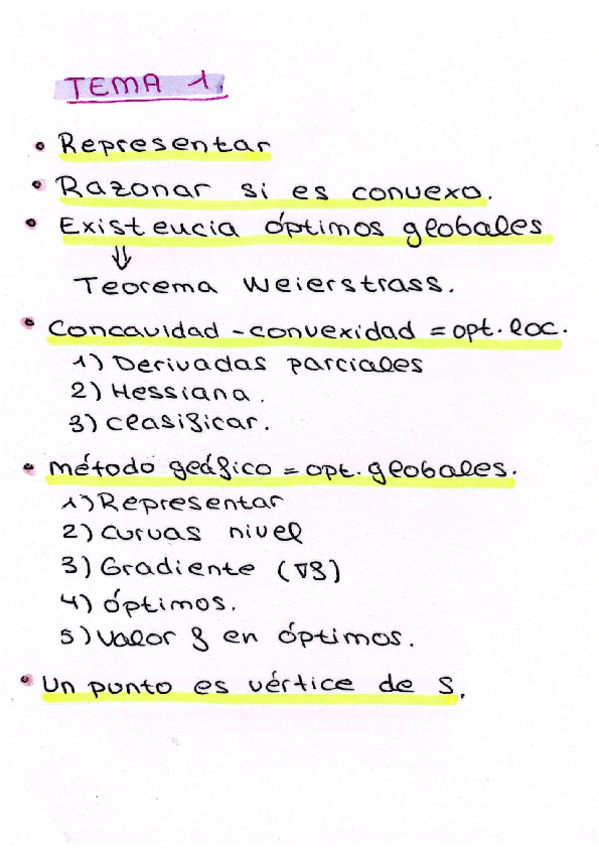 TEMA 1.
• Representar
• Razonar si es convexo.
• Existencia óptimos globales
⇓
Teorema Weierstrass.
• Concavidad - convexidad = opt. loc.
1) Derivadas parciales
2) Hessiana.
3) clasificar.
• método gráfico = opt. globales.
1) Representar
2) Curvas nivel
3) Gradiente (∇f)
4) óptimos.
5) valor f en óptimos.
• Un punto es vértice de S.